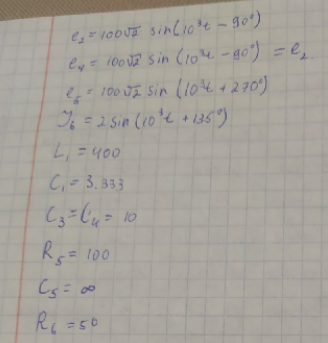 e₂ = 100√2 sin(10³t - 90°)
e₄ = 100√2 sin(10³t - 90°) = e₂
e₅ = 100√2 sin(10³t + 270°)
J₆ = 2 sin(10³t + 135°)
L₁ = 400
C₁ = 3.333
C₃ = C₄ = 10
R₅ = 100
C₅ = ∞
R₆ = 50